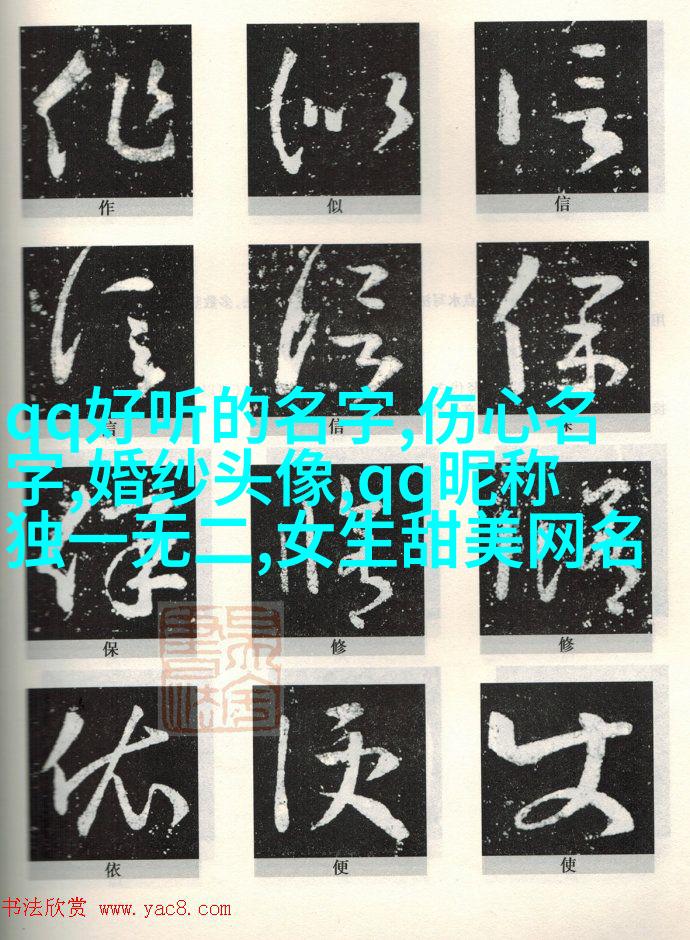 作 似 信
信 信 保
qq好听的名字,伤心名
字,婚纱头像,qq昵称
独一无二,女生甜美网名
保 修 修
依 便 使
书法欣赏 www.yac8.com